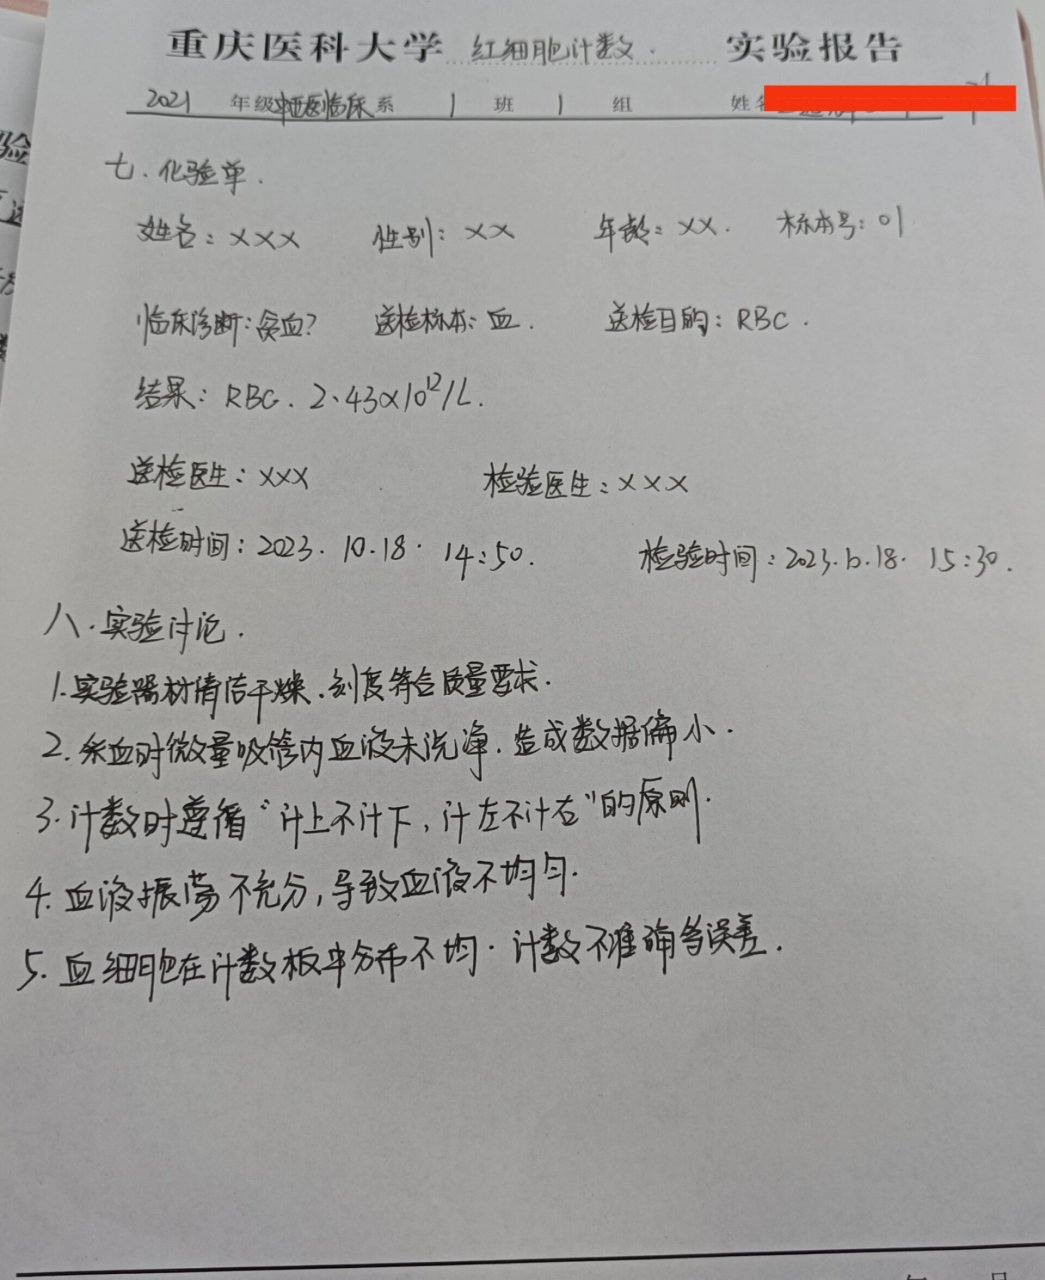 重庆医科大学 红细胞计数. 实验报告
2021 年级 中西医临床 系 1 班 1 组 姓名
七. 化验单.
姓名: XXX 性别: XX 年龄: XX. 标本号: 01
临床诊断: 贫血? 送检标本: 血. 送检目的: RBC.
结果: RBC. 2.43x10¹²/L.
送检医生: XXX 检验医生: XXX
送检时间: 2023. 10.18. 14:50. 检验时间: 2023.10.18. 15:30.
八. 实验讨论.
1. 实验器材清洁干燥. 刻度符合质量要求.
2. 采血时微量吸管内血液未洗净. 造成数据偏小.
3. 计数时遵循“计上不计下, 计左不计右”的原则.
4. 血液振荡不充分, 导致血液不均匀.
5. 血细胞在计数板中分布不均. 计数不准确等误差.